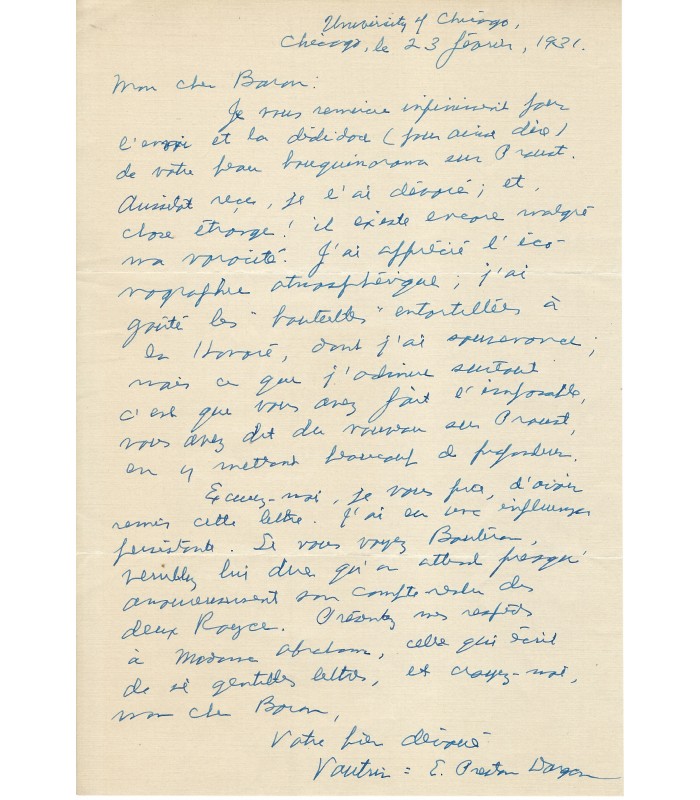 University of Chicago,
Chicago, le 23 février, 1931.
Mon cher Baron:
Je vous remercie infiniment pour
l'envoi et la dédicace (pour ainsi dire)
de votre beau bouquinorama sur Proust.
Aussitôt reçu, je l'ai dévoré; et,
chose étrange! il existe encore malgré
ma voracité. J'ai apprécié l'ico-
nographie atmosphérique; j'ai
goûté les "bouteilles" entortillées à
la Honoré, dont j'ai souvenance;
mais ce que j'admire surtout
c'est que vous avez fait l'impossible,
vous avez dit du nouveau sur Proust,
en y mettant beaucoup de profondeur.
Excusez-moi, je vous prie, d'avoir
remis cette lettre. J'ai eu une influenza
persistante. Si vous voyez Bouteron,
veuillez lui dire qu'on attend presqu'
amoureusement son compte rendu des
deux Royce. Présentez mes respects
à Madame Abraham, celle qui écrit
de si gentilles lettres, et croyez-moi,
mon cher Baron,
Votre bien dévoué
Vautrin = E. Preston Dargan